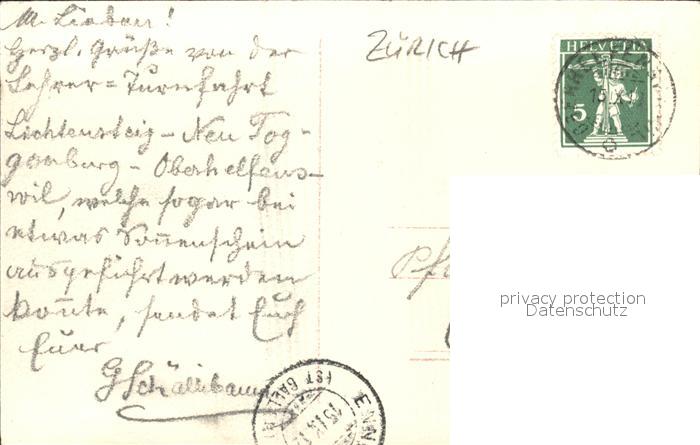 M. Lieben!
Herzl. Grüße von der
Lehrer=Turnfahrt
Lichtensteig – Neu Tog-
genburg – Oberhelfens-
wil, welche sogar bei
etwas Sonnenschein
ausgeführt werden
konnte, sendet Euch
Euer
G Schällibaum
ZÜRICH
HELVETIA
5
Pf
privacy protection
Datenschutz
(ST. GALL